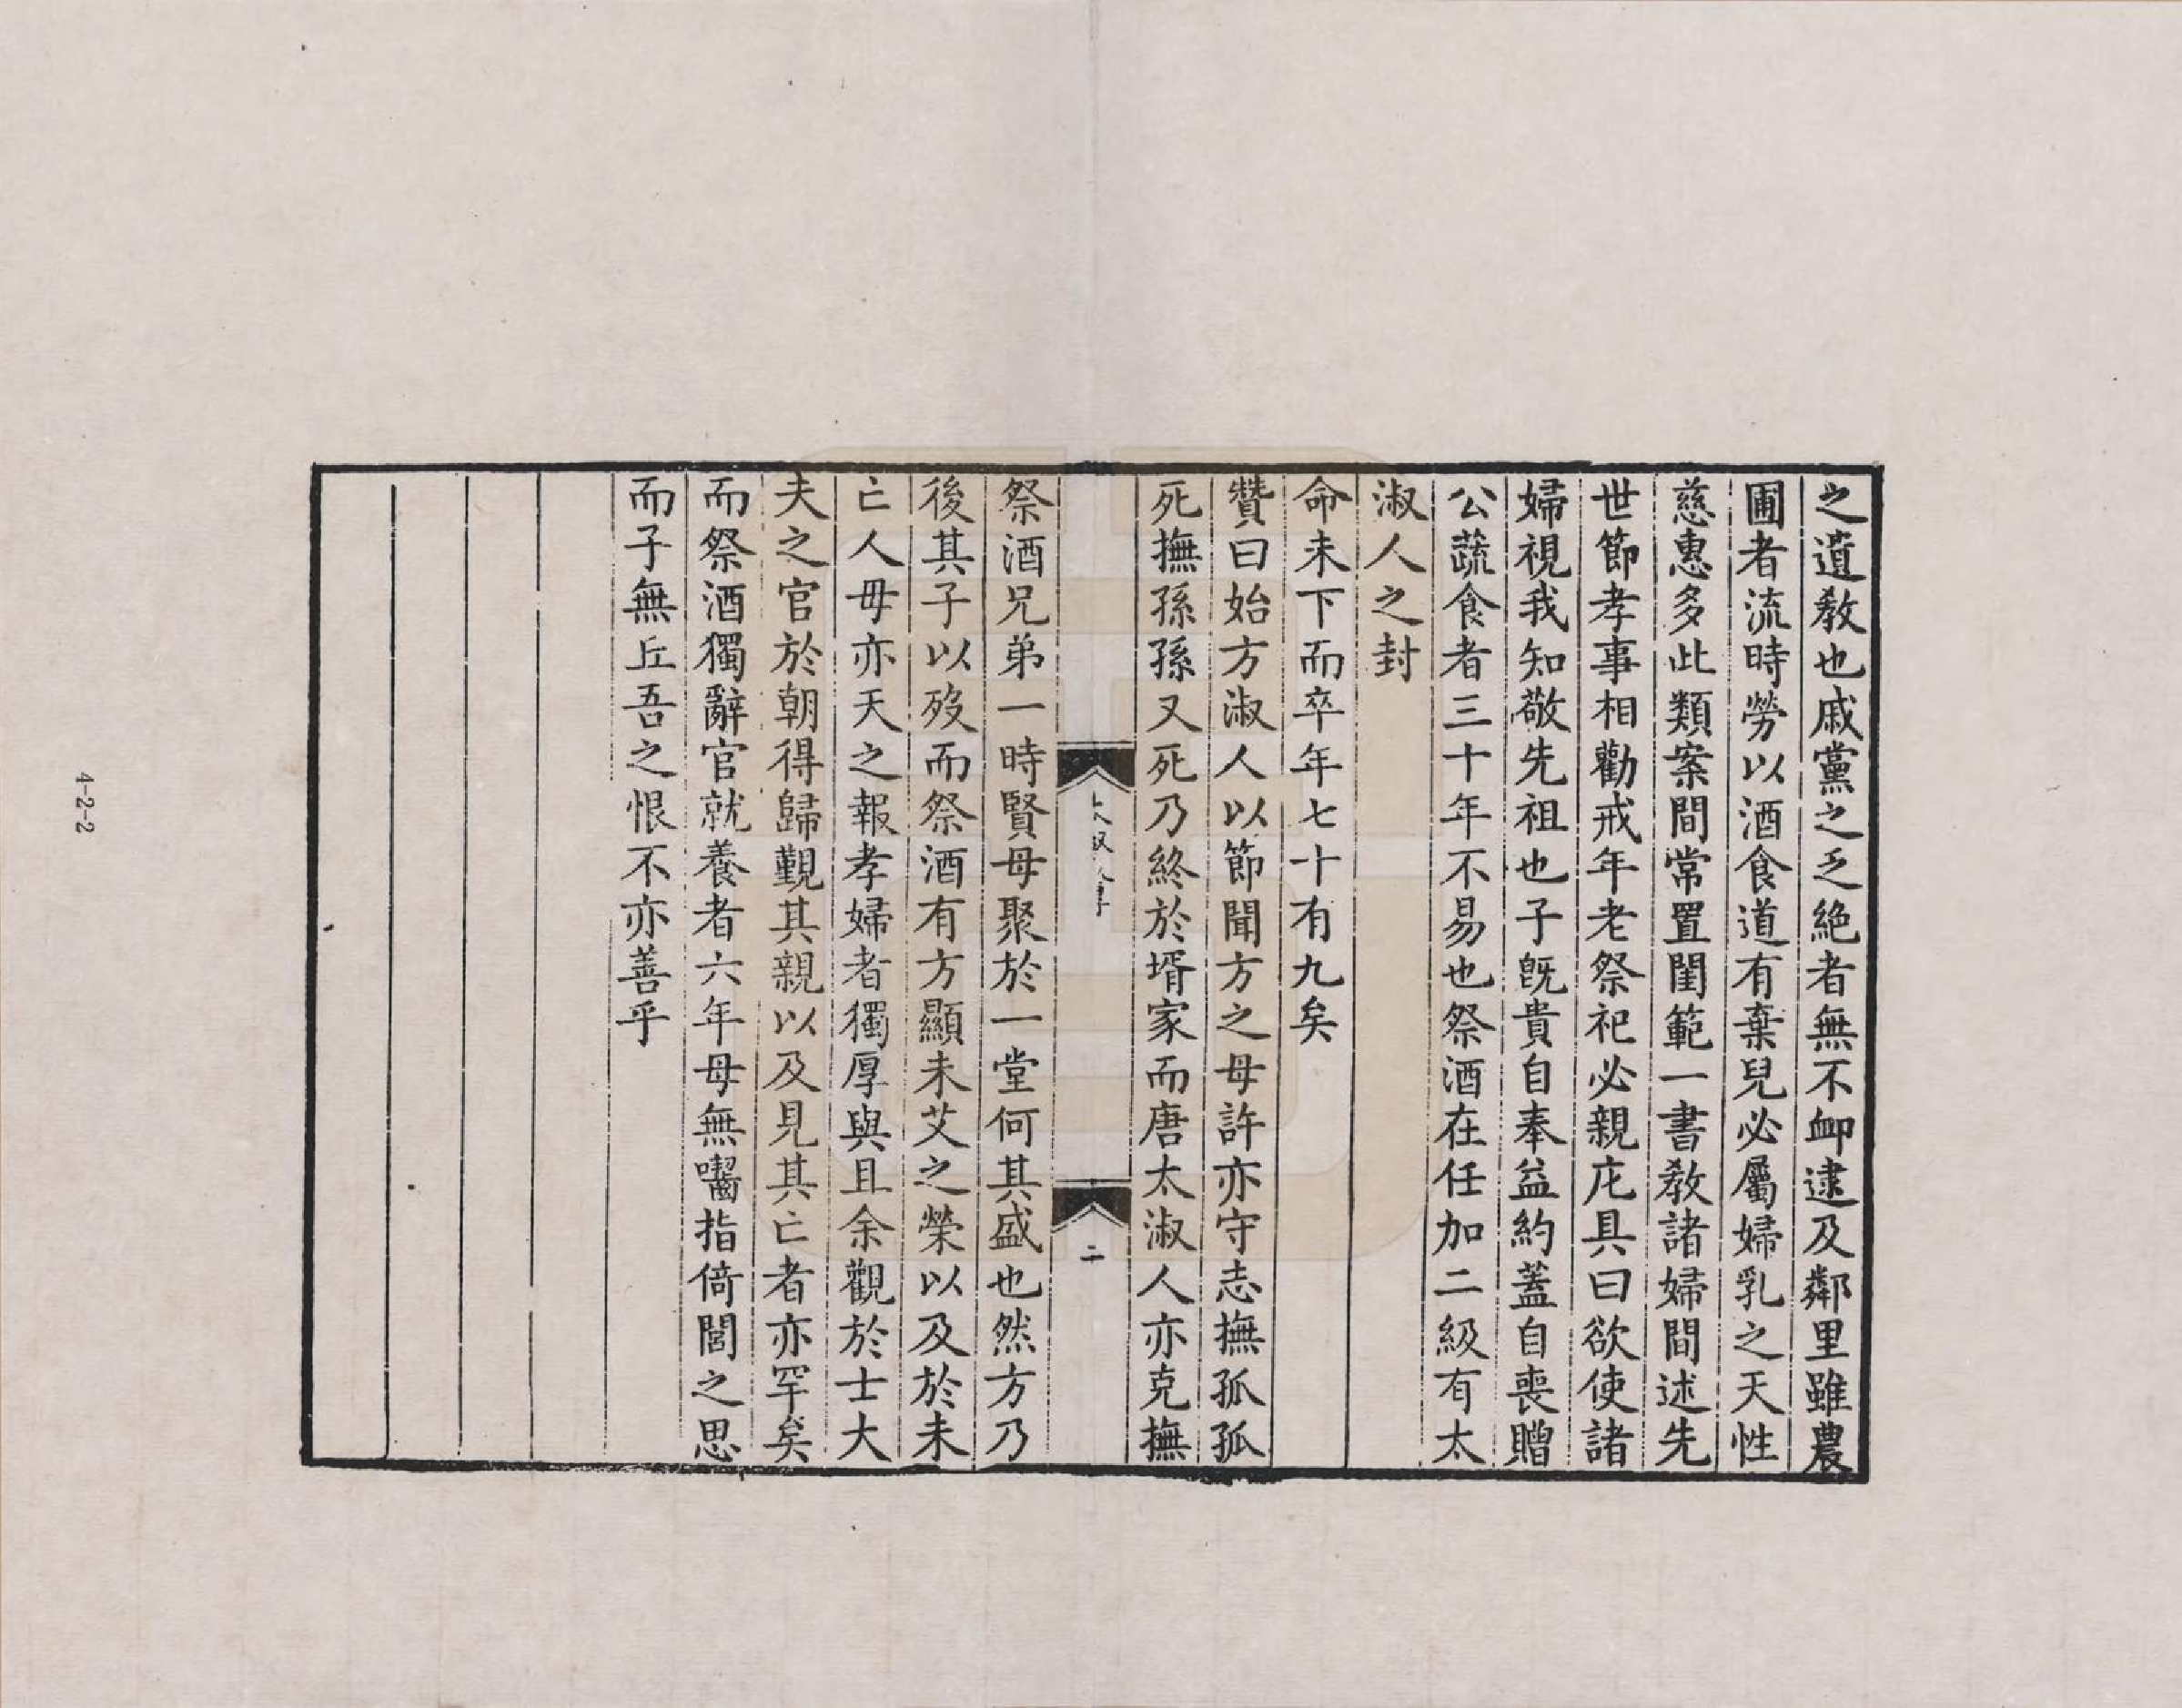 之遺敎也戚黨之乏絕者無不卹逮及鄰里雖農
圃者流時勞以酒食道有棄兒必屬婦乳之天性
慈惠多此類案間常置閨範一書敎諸婦間述先
世節孝事相勸戒年老祭祀必親庀具曰欲使諸
婦視我知敬先祖也子旣貴自奉益約蓋自喪贈
公蔬食者三十年不易也祭酒在任加二級有太
淑人之封
命未下而卒年七十有九矣
贊曰始方淑人以節聞方之母許亦守志撫孤孤
死撫孫孫又死乃終於壻家而唐太淑人亦克撫
二
祭酒兄弟一時賢母聚於一堂何其盛也然方乃
後其子以歿而祭酒有方顯未艾之榮以及於未
亡人毋亦天之報孝婦者獨厚與且余觀於士大
夫之官於朝得歸覲其親以及見其亡者亦罕矣
而祭酒獨辭官就養者六年母無囓指倚閭之思
而子無丘吾之恨不亦善乎
4-2-2